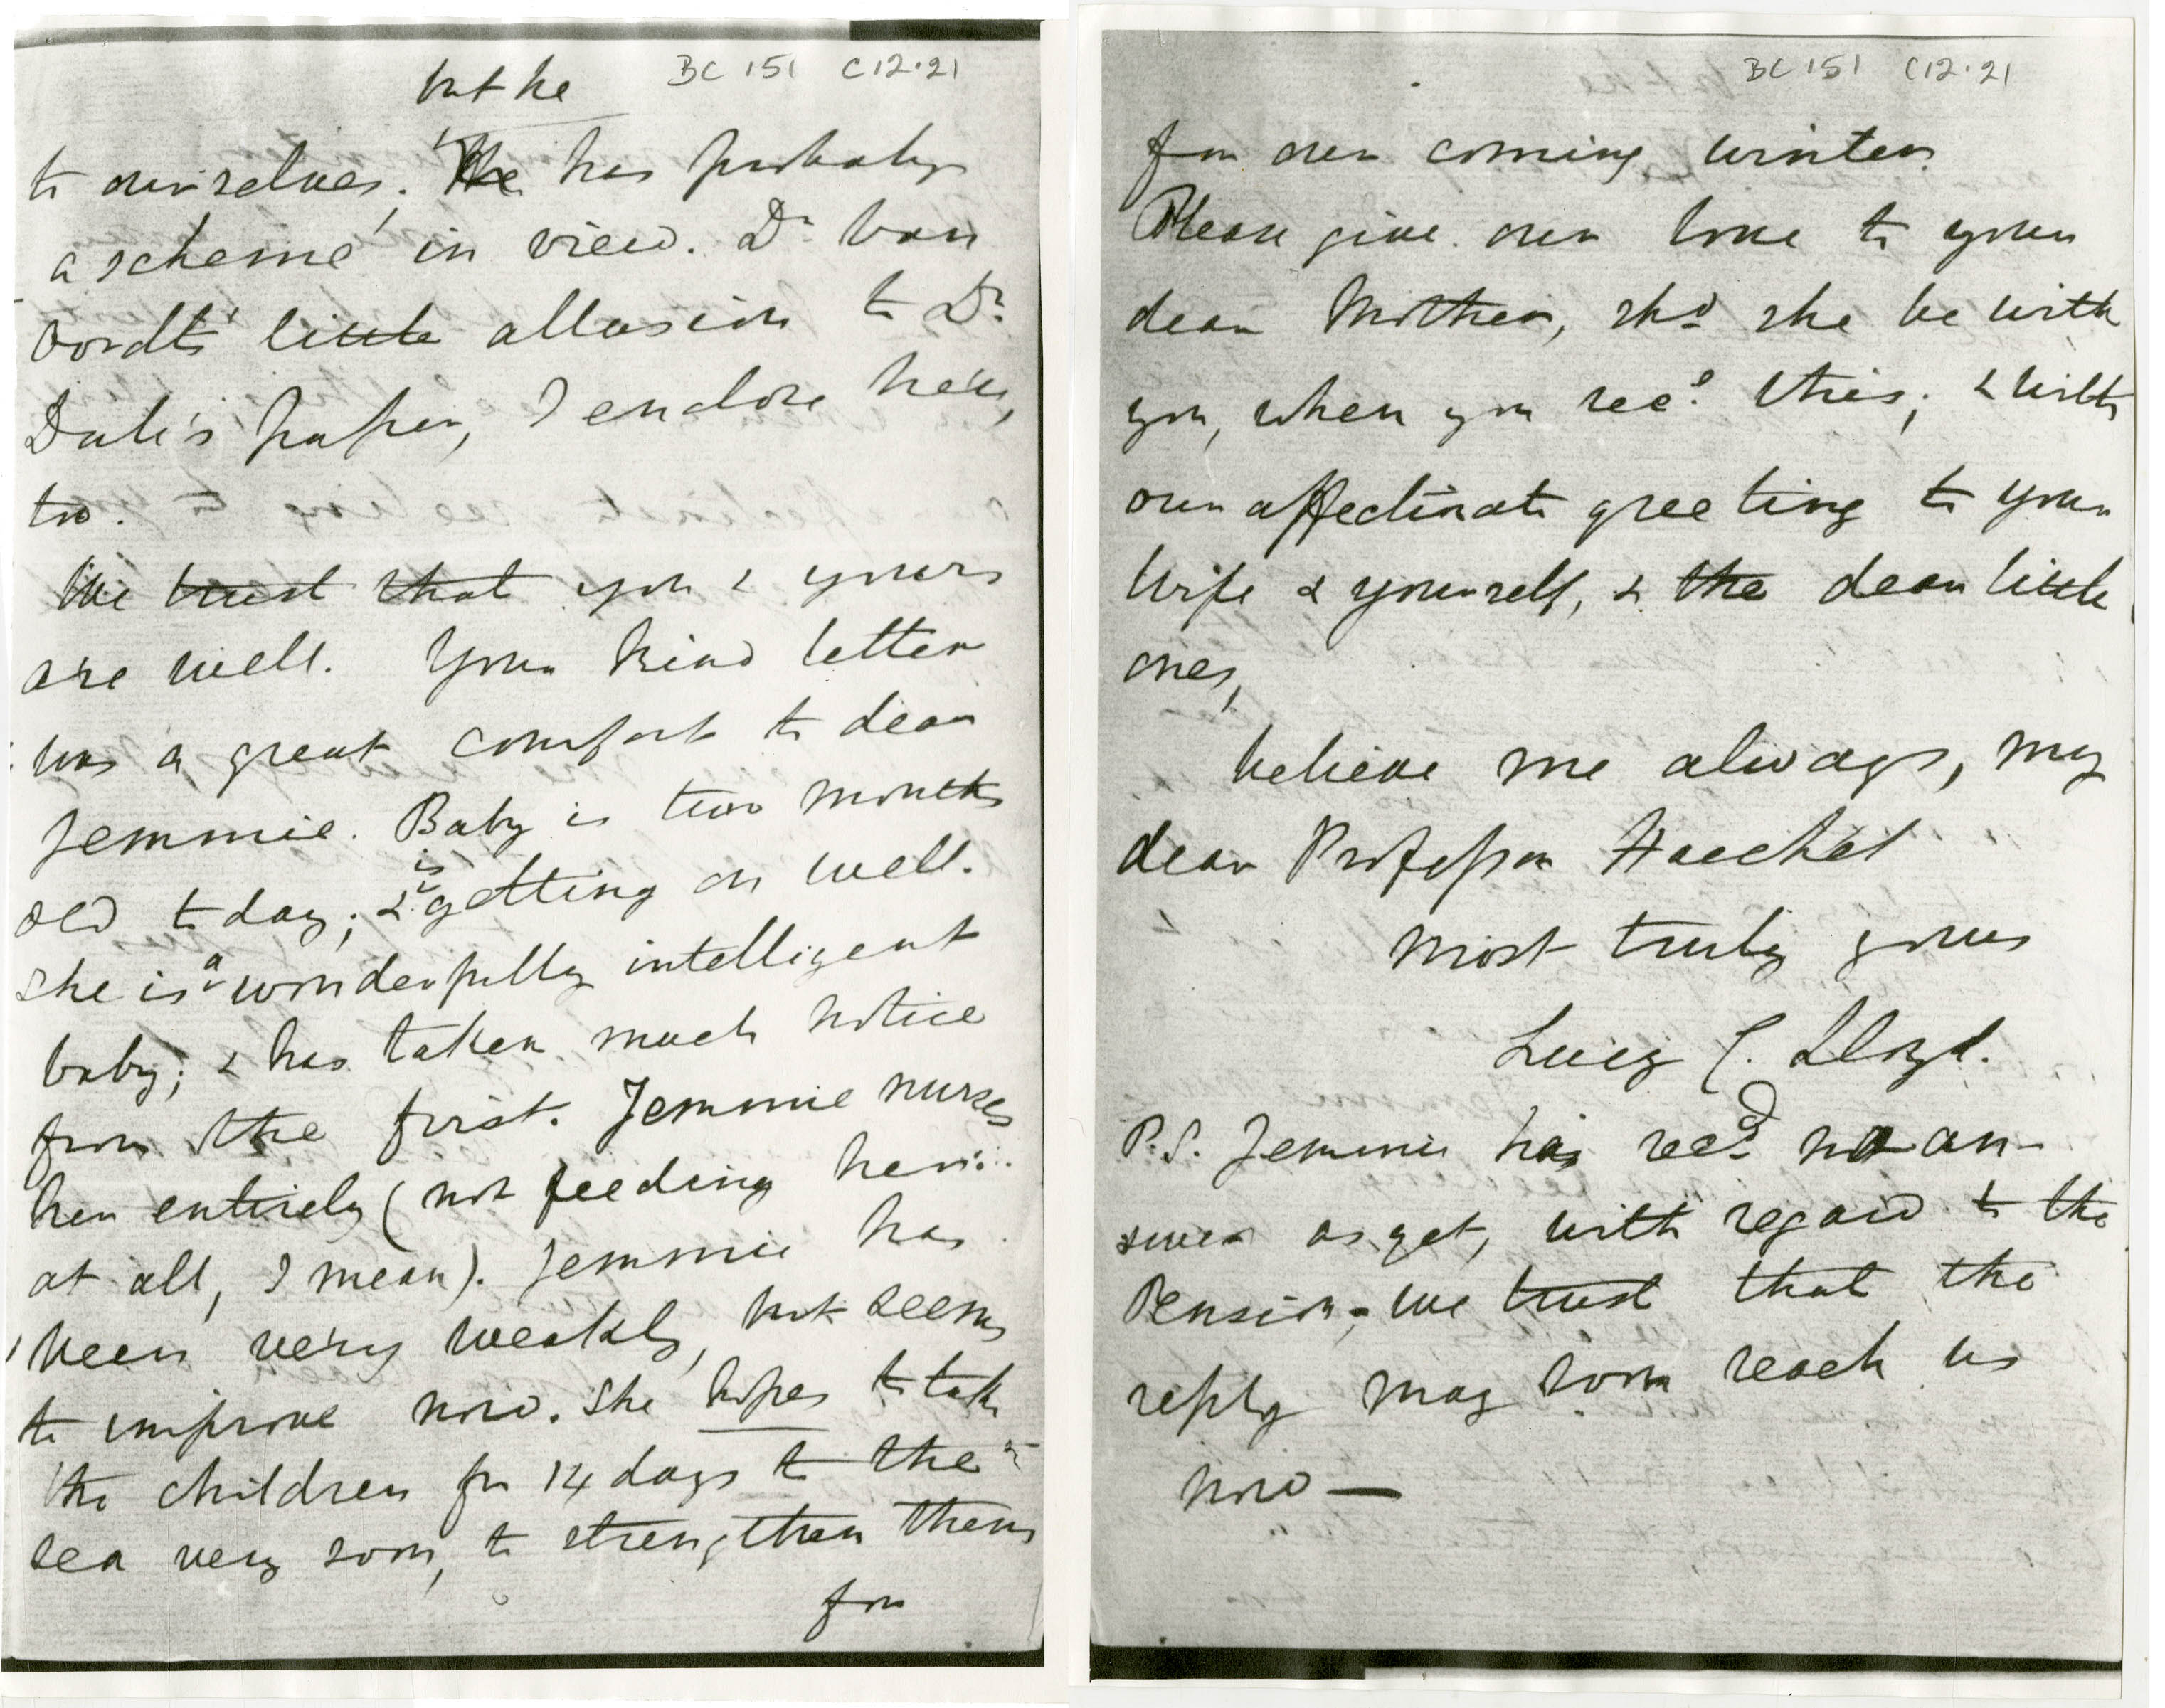 BC 151 C12.21
but he
to ourselves; He has probably
a scheme in view. Dr. van
Oordt's little allusion to Dr.
Dale's paper, I enclose here,
too.
We trust that you & yours
are well. Your kind letter
was a great comfort to dear
Jemmie. Baby is two months
old today; & is getting on well.
She is a wonderfully intelligent
baby; & has taken much notice
from the first. Jemmie nurses
her entirely (not feeding her
at all, I mean). Jemmie has
been very weakly, but seems
to improve now. She hopes to take
the children for 14 days to the
sea very soon, to strengthen them
for
BC 151 C12.21
for our coming winter.
Please give our love to your
dear Mother, shd. she be with
you, when you recd. this; & with
our affectionate greeting to your
Wife & yourself, & the dear little
ones,
believe me always, my
dear Professor Haeckel
most truly yours
Lucy C. Lloyd.
P.S. Jemmie has recd. no an-
swer as yet, with regard to the
Pension; we trust that the
reply may soon reach us
now —